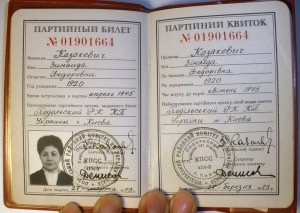 ПАРТИЙНЫЙ БИЛЕТ
№ 01901664
Фамилия Казакевич
Имя Зинаида
Отчество Федоровна
Год рождения 1920
Время вступления в партию апрель 1945
Наименование партийного органа, выдавшего билет
Подольский РК КП
Украины г. Киева
КПСС
ПАРТІЙНИЙ КВИТОК
№ 01901664
Прізвище Казакевич
Ім'я Зінаїда
По батькові Федорівна
Рік народження 1920
Час вступу до партії квітень 1945
Найменування партійного органу, який видав квиток
Подільський РК КП
України м. Києва
КПСС